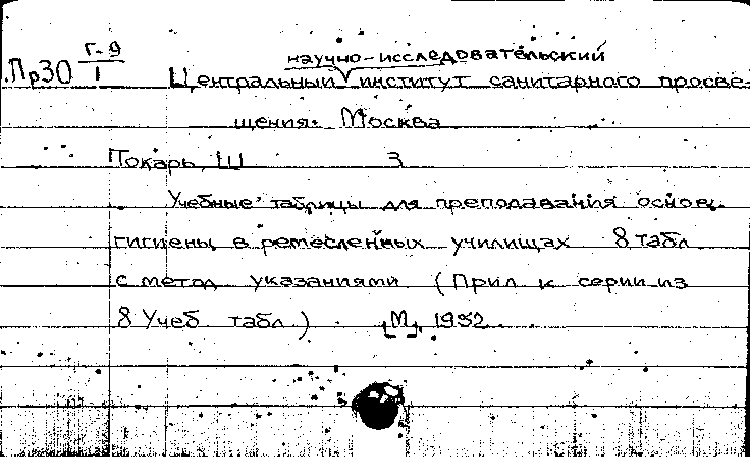 Г-9
Пр30 1
научно-исследовательский
Центральный институт санитарного просве-
щения. Москва
Токарь, Ш З
Учебные таблицы для преподавания основ
гигиены в ремесленных училищах 8 табл
с метод указаниями (Прил к серии из
8 Учеб табл.) [М], 1952